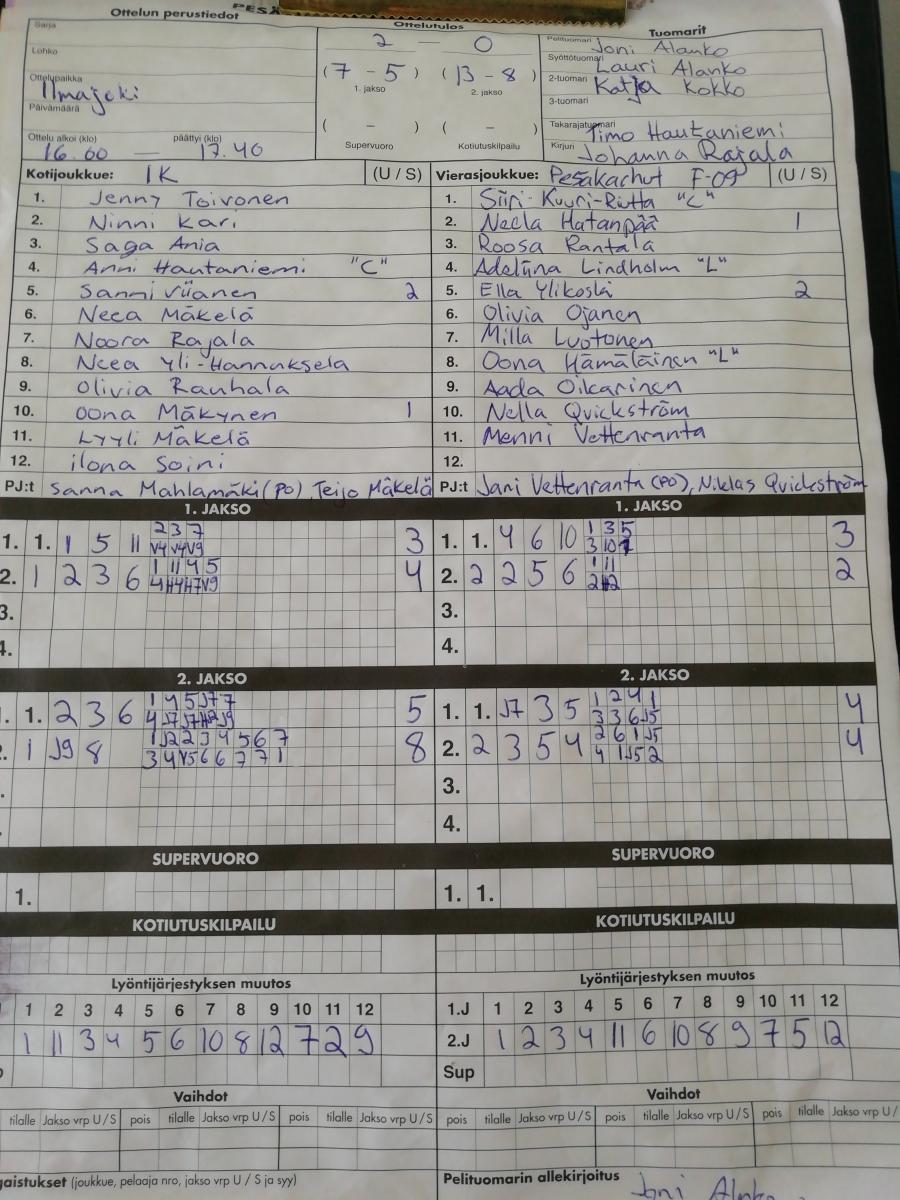 Ottelun perustiedot
Ottelutulos
Tuomarit
Sarja
Lohko
Ottelupaikka
Ilmajoki
Päivämäärä
Ottelu alkoi (klo) päättyi (klo)
16.00 — 17.40
2 — 0
(7 - 5) (13 - 8)
1. jakso 2. jakso
( - ) ( - )
Supervuoro Kotiutuskilpailu
Pelituomari Joni Alanko
Syöttötuomari Lauri Alanko
2-tuomari Katja Kokko
3-tuomari
Takarajatuomari Timo Hautaniemi
Kirjuri Johanna Rajala
Kotijoukkue: IK (U / S)
1. Jenny Toivonen
2. Ninni Kari
3. Saga Ania
4. Anni Hautaniemi "C"
5. Sanni Viianen 2
6. Neea Mäkelä
7. Noora Rajala
8. Neea Yli-Hannuksela
9. Olivia Rauhala
10. Oona Mäkynen 1
11. Lyyli Mäkelä
12. Ilona Soini
PJ:t Sanna Mahlamäki (PO), Teijo Mäkelä
Vierasjoukkue: Pesäkarhut F-09 (U / S)
1. Siiri Kuuri-Riutta "C"
2. Neela Hatanpää 1
3. Roosa Rantala
4. Adeliina Lindholm "L"
5. Ella Ylikoski 2
6. Olivia Ojanen
7. Milla Luotonen
8. Oona Hämäläinen "L"
9. Aada Oikarinen
10. Nella Quickström
11. Menni Vettenranta
12.
PJ:t Jani Vettenranta (PO), Niklas Quickström
1. JAKSO
1. 1. 1 5 11 2 3 7 3
V4 V4 V9
2. 1 2 3 6 1 11 4 5 4
4 H4 H7 V9
3.
4.
1. JAKSO
1. 1. 4 6 10 1 3 5 3
3 10
2. 2 2 5 6 1 11 2
2
3.
4.
2. JAKSO
1. 2 3 6 1 4 5 J7 7 5
4 J7 J7 J9
1 J9 8 1 J2 2 3 4 5 6 7 8
3 4 V5 6 6 7 7 1
2. JAKSO
1. 1. J7 3 5 1 2 4 1 4
3 3 6 J5
2. 2 3 5 4 2 6 1 J5 4
4 1 J5 2
3.
4.
SUPERVUORO
1.
SUPERVUORO
1. 1.
KOTIUTUSKILPAILU
KOTIUTUSKILPAILU
Lyöntijärjestyksen muutos
1 2 3 4 5 6 7 8 9 10 11 12
1 11 3 4 5 6 10 8 12 7 2 9
Lyöntijärjestyksen muutos
1.J 1 2 3 4 5 6 7 8 9 10 11 12
2.J 1 2 3 4 11 6 10 8 9 7 5 12
Sup
Vaihdot
tilalle Jakso vrp U / S pois tilalle Jakso vrp U / S pois tilalle Jakso vrp U / S
Vaihdot
pois tilalle Jakso vrp U / S pois tilalle Jakso vrp U / S pois tilalle Jakso vrp U /
gaistukset (joukkue, pelaaja nro, jakso vrp U / S ja syy)
Pelituomarin allekirjoitus Joni Alanko